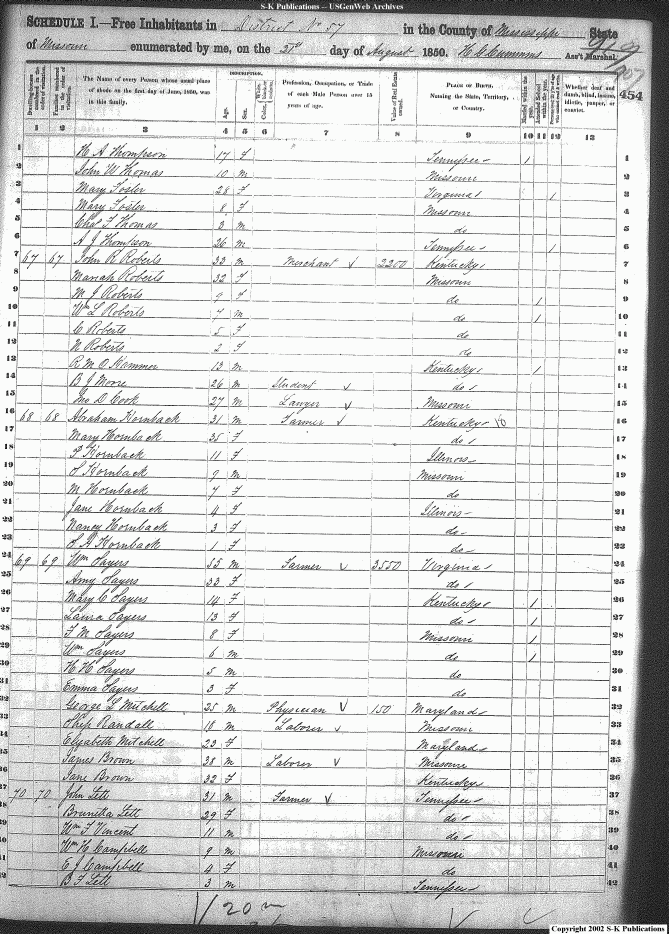 S-K Publications -- USGenWeb Archives
SCHEDULE I.—Free Inhabitants in District No 57 in the County of Mississippi State
of Missouri enumerated by me, on the 21st day of August 1850. Ass't Marshal.
907
454
Dwelling-houses numbered in the order of visitation.
Families numbered in the order of visitation.
The Name of every Person whose usual place of abode on the first day of June, 1850, was in this family.
DESCRIPTION.
Age. Sex. Color,
Profession, Occupation, or Trade of each Male Person over 15 years of age.
Value of Real Estate owned.
PLACE OF BIRTH. Naming the State, Territory, or Country.
Married within the year.
Attended School within the year.
Whether deaf and dumb, blind, insane, idiotic, pauper, or convict.
1 2 3 4 5 6 7 8 9 10 11 12 13
1 H A Thompson 17 F Tennessee 1 1
2 John W Thomas 10 m Missouri 2
3 Mary Foster 28 F Virginia 1 3
4 Mary Foster 8 F Missouri 4
5 Chas F Thomas 3 m do 5
6 A J Thompson 26 m Tennessee 1 6
7 67 67 John R Roberts 33 m Merchant 2200 Kentucky 7
8 Mariah Roberts 32 F Missouri 8
9 M J Roberts 9 F do 1 9
10 Wm L Roberts 7 m do 1 10
11 C Roberts 5 F do 11
12 N Roberts 2 F do 12
13 R M O Hammer 13 m Kentucky 1 13
14 B J Moore 26 m Student do 14
15 Jno D Cook 27 m Lawyer Missouri 15
16 68 68 Abraham Hornback 31 m Farmer Kentucky 10 16
17 Mary Hornback 35 F do 17
18 Hornback 11 F Illinois 18
19 S Hornback 9 m Missouri 19
20 M Hornback 7 F do 20
21 Jane Hornback 4 F Illinois 21
22 Nancy Hornback 3 F do 22
23 S A Hornback 1 F do 23
24 69 69 Wm Sayers 55 m Farmer 3550 Virginia 24
25 Amy Sayers 33 F do 25
26 Mary C Sayers 14 F Kentucky 1 26
27 Laura Sayers 13 F do 1 27
28 F M Sayers 8 F Missouri 1 28
29 Wm Sayers 6 m do 1 29
30 H H Sayers 5 m do 30
31 Emma Sayers 3 F do 31
32 George L Mitchell 25 m Physician 150 Maryland 32
33 Randall 18 m Laborer Missouri 33
34 Elizabeth Mitchell 23 F Maryland 34
35 James Brown 38 m Laborer Missouri 35
36 Jane Brown 32 F Kentucky 36
37 70 70 John Lett 31 m Farmer Tennessee 37
38 Lett 29 F do 38
39 Wm F Vincent 11 m do 39
40 Wm H Campbell 9 m Missouri 40
41 E J Campbell 4 F do 41
42 B F Lett 3 m Tennessee 42
20 m
Copyright 2002 S-K Publications